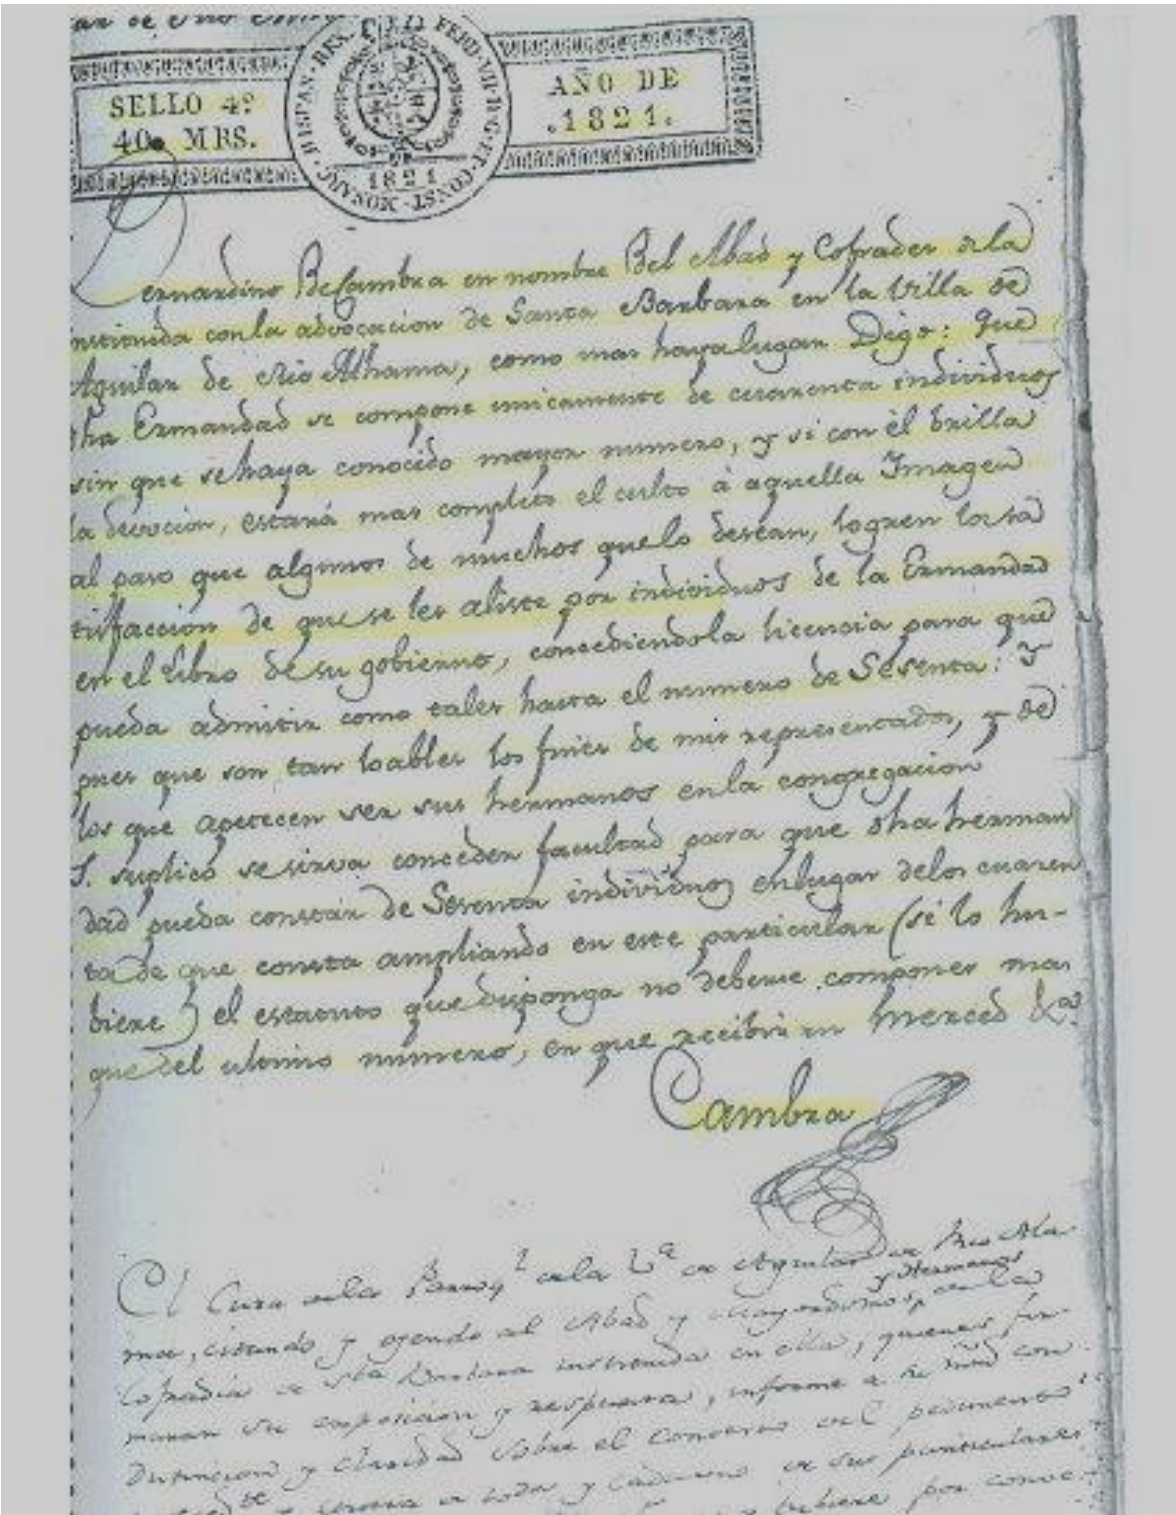 SELLO 4º
40 MRS.
HISPAN. REX. FERD. VII. D. G. ET. CONST. MONARC.
1821
AÑO DE
.1821.
Bernardino De Cambra en nombre Del Abad y Cofrades dela
instituida conla advocacion de Santa Barbara en la Villa de
Aguilar de Rio Alhama, como mas hayalugar Digo: Que
dha Ermandad se compone unicamente de cuarenta individuos
sin que sehaya conocido mayor numero, y si con èl brilla
la devocion, estará mas completo el culto à aquella Imagen
al paso que algunos de muchos quelo desean, logren la sa
tisfaccion de que se les aliste por individuos de la Ermandad
en el Libro de su gobierno, concediendola licencia para que
pueda admitir como tales hasta el numero de Sesenta: Y
pues que son tan loables los fines de mis representados, y de
los que apetecen ser sus hermanos enla congregacion
S. suplico se sirva conceder facultad para que dha herman
dad pueda constar de Sesenta individuos enlugar delos cuaren
ta de que consta ampliando en este particular (si lo hu-
biere) el estatuto que disponga no deberse componer mas
que del ultimo numero, en que recibirè merced &a.
Cambra
El Cura de la Parroql dela Va de Aguilar de Rio Alha
y Hermanos
ma, citando y oyendo al Abad y Mayordomos, de la
Cofradia de Sta Barbara instituida en ella, quienes fir-
maran su exposicion y respuesta, informe a con
distincion y claridad sobre el contexto del pedimento
y en toda y cada una de sus particulares
y hubiere por conve-